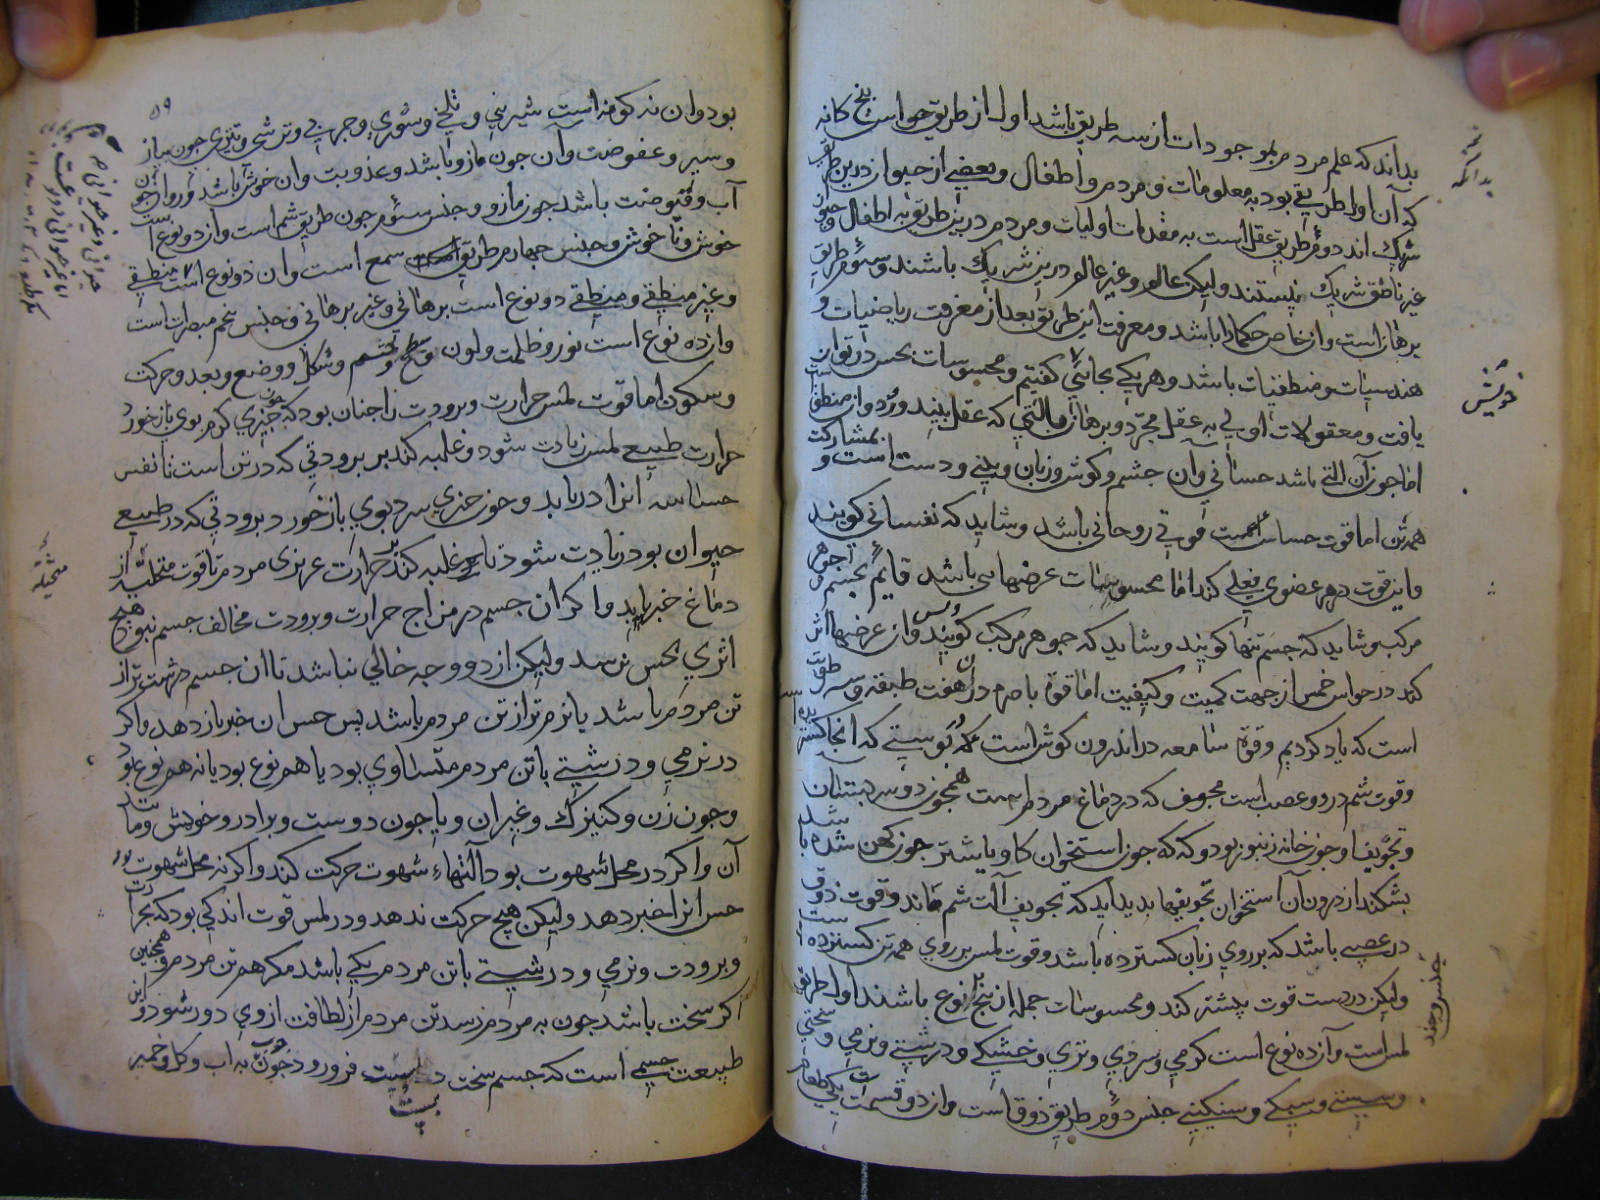 بداند که علم مردم بموجودات از سه طریق باشد اول از طریق حواس پنج کانه
که آن اول طریقی بود به معلومات و مردم و اطفال و بعضی از حیوان درین طریق
شریک اند دوم طریق عقل است به مقدمات اولیات و مردم درین طریق به اطفال و حیوان
غیر ناطق شریک نیستند ولیکن عالم و غیر عالم درین شریک باشند و سئوم طریق
برهان است و ان خاص حکما را باشد و معرفت این طریق بعد از معرفت ریاضیات و
هندسیات و منطقیات باشد و هر یکی بجائی کفتیم و محسوسات بحس در توان
یافت و معقولات اولی به عقل مجرد و برهان مالتی که عقل بیند ورد و ان منطق است
اما چون آن التی باشد جسمانی وان چشم و کوش و زبان و بینی و دست است و بمشارکت
همه تن اما قوت حساس قوتی روحانی باشد و شاید که نفسانی کویند
واین قوت در هر عضوی فعلی کند اما محسوسات عرضهایی باشد قایم بجسم و جوهر
مرکب و شاید که جسم تنها کویند و شاید که جوهر مرکب کویند و ان عرضها اثر
کند در حواس خمس از جهت کمیت و کیفیت اما قوة باصره در ان هفت طبقه و سه رطوبت
است که یاد کردیم و قوة سامعه در اندرون کوش است که پوستی که انجا کسترده است
و قوت شم در دو عصب است مجوف که در دماغ مردم است همچون دو سر پستان
و تجویف او چون خانه زنبور بود و که که چون استخوان کاو یا شتر چون کهن شده باشد
بشکند از درون آن استخوان تجویفها پدید اید که تجویف آلت شم ماند و قوت ذوق
در عصبی باشد که بر روی زبان کسترده باشد و قوت لمس بر روی همه تن کسترده است
ولیکن در دست قوت بیشتر کند و محسوسات جمله از پنج نوع باشند اول طریق
لمس است و آن ده نوع است کرمی و سردی و تری و خشکی و درشتی و نرمی و سختی
و سستی و سبکی و سنکینی جنس دوم طریق ذوق است و ان دو قسمت یکی طعام
خویش
۵۹
بود و ان نه کونه است شیرینی و تلخی و شوری و چربی و ترشی و تیزی چون پیاز
و سیر و عفوصت و آن چون مازو باشد و عذوبت و ان خوش باشد و روان چون
آب و قبوضت باشد چون مازو و جنس سئوم چون طریق شم است و ان دو نوع است
خوش و نا خوش و جنس چهارم طریق سمع است و ان دو نوع است منطقی
و غیر منطقی و منطقی دو نوع است برهانی و غیر برهانی و جنس پنجم مبصرات است
وان ده نوع است نور و ظلمت و لون و سطح و جسم و شکل و وضع و بعد و حرکت
و سکون اما قوت لمس حرارت و برودت را چنان بود که چون چیزی کرم بوی باز خورد
حرارت طبیع لمس زیادت شود و غلبه کند بر برودتی که در تن است تا نفس
حساسه انرا دریابد و چون چیزی سرد بوی باز خورد برودتی که در طبیع
حیوان بود زیادت شود تا غلبه کند بر حرارت غریزی مردم تا قوت متخیله از
دماغ خبر یابد و اکر ان جسم در مزاج حرارت و برودت مخالف جسم نبود هیچ
اثری بحس نرسد ولیکن از دو وجه خالی نباشد تا ان جسم درشت تر از
تن مردم باشد یا نرم تر از تن مردم باشد پس حس ان خبر باز دهد و اکر
در نرمی و درشتی با تن مردم متساوی بود یا هم نوع بود یا نه هم نوع بود
و چون زن و کنیزک و غیر ان و یا چون دوست و برادر و خویش و مانند
آن و اکر در محل شهوت بود آلتهاء شهوت حرکت کند و اکر نه محل شهوت بود
حس انرا خبر دهد ولیکن هیچ حرکت ندهد و در لمس قوت اندکی بود که بحرارت
و برودت و نرمی و درشتی با تن مردم یکی باشد مکر هم تن مردم و همچنین
اکر سخت باشد چون به مردم رسد تن مردم از لطافت از وی دور شود و این
طبیعت جسمی است که جسم سخت در فرو رود چون چوب به اب و کل و خمیر
متخیله
بیست